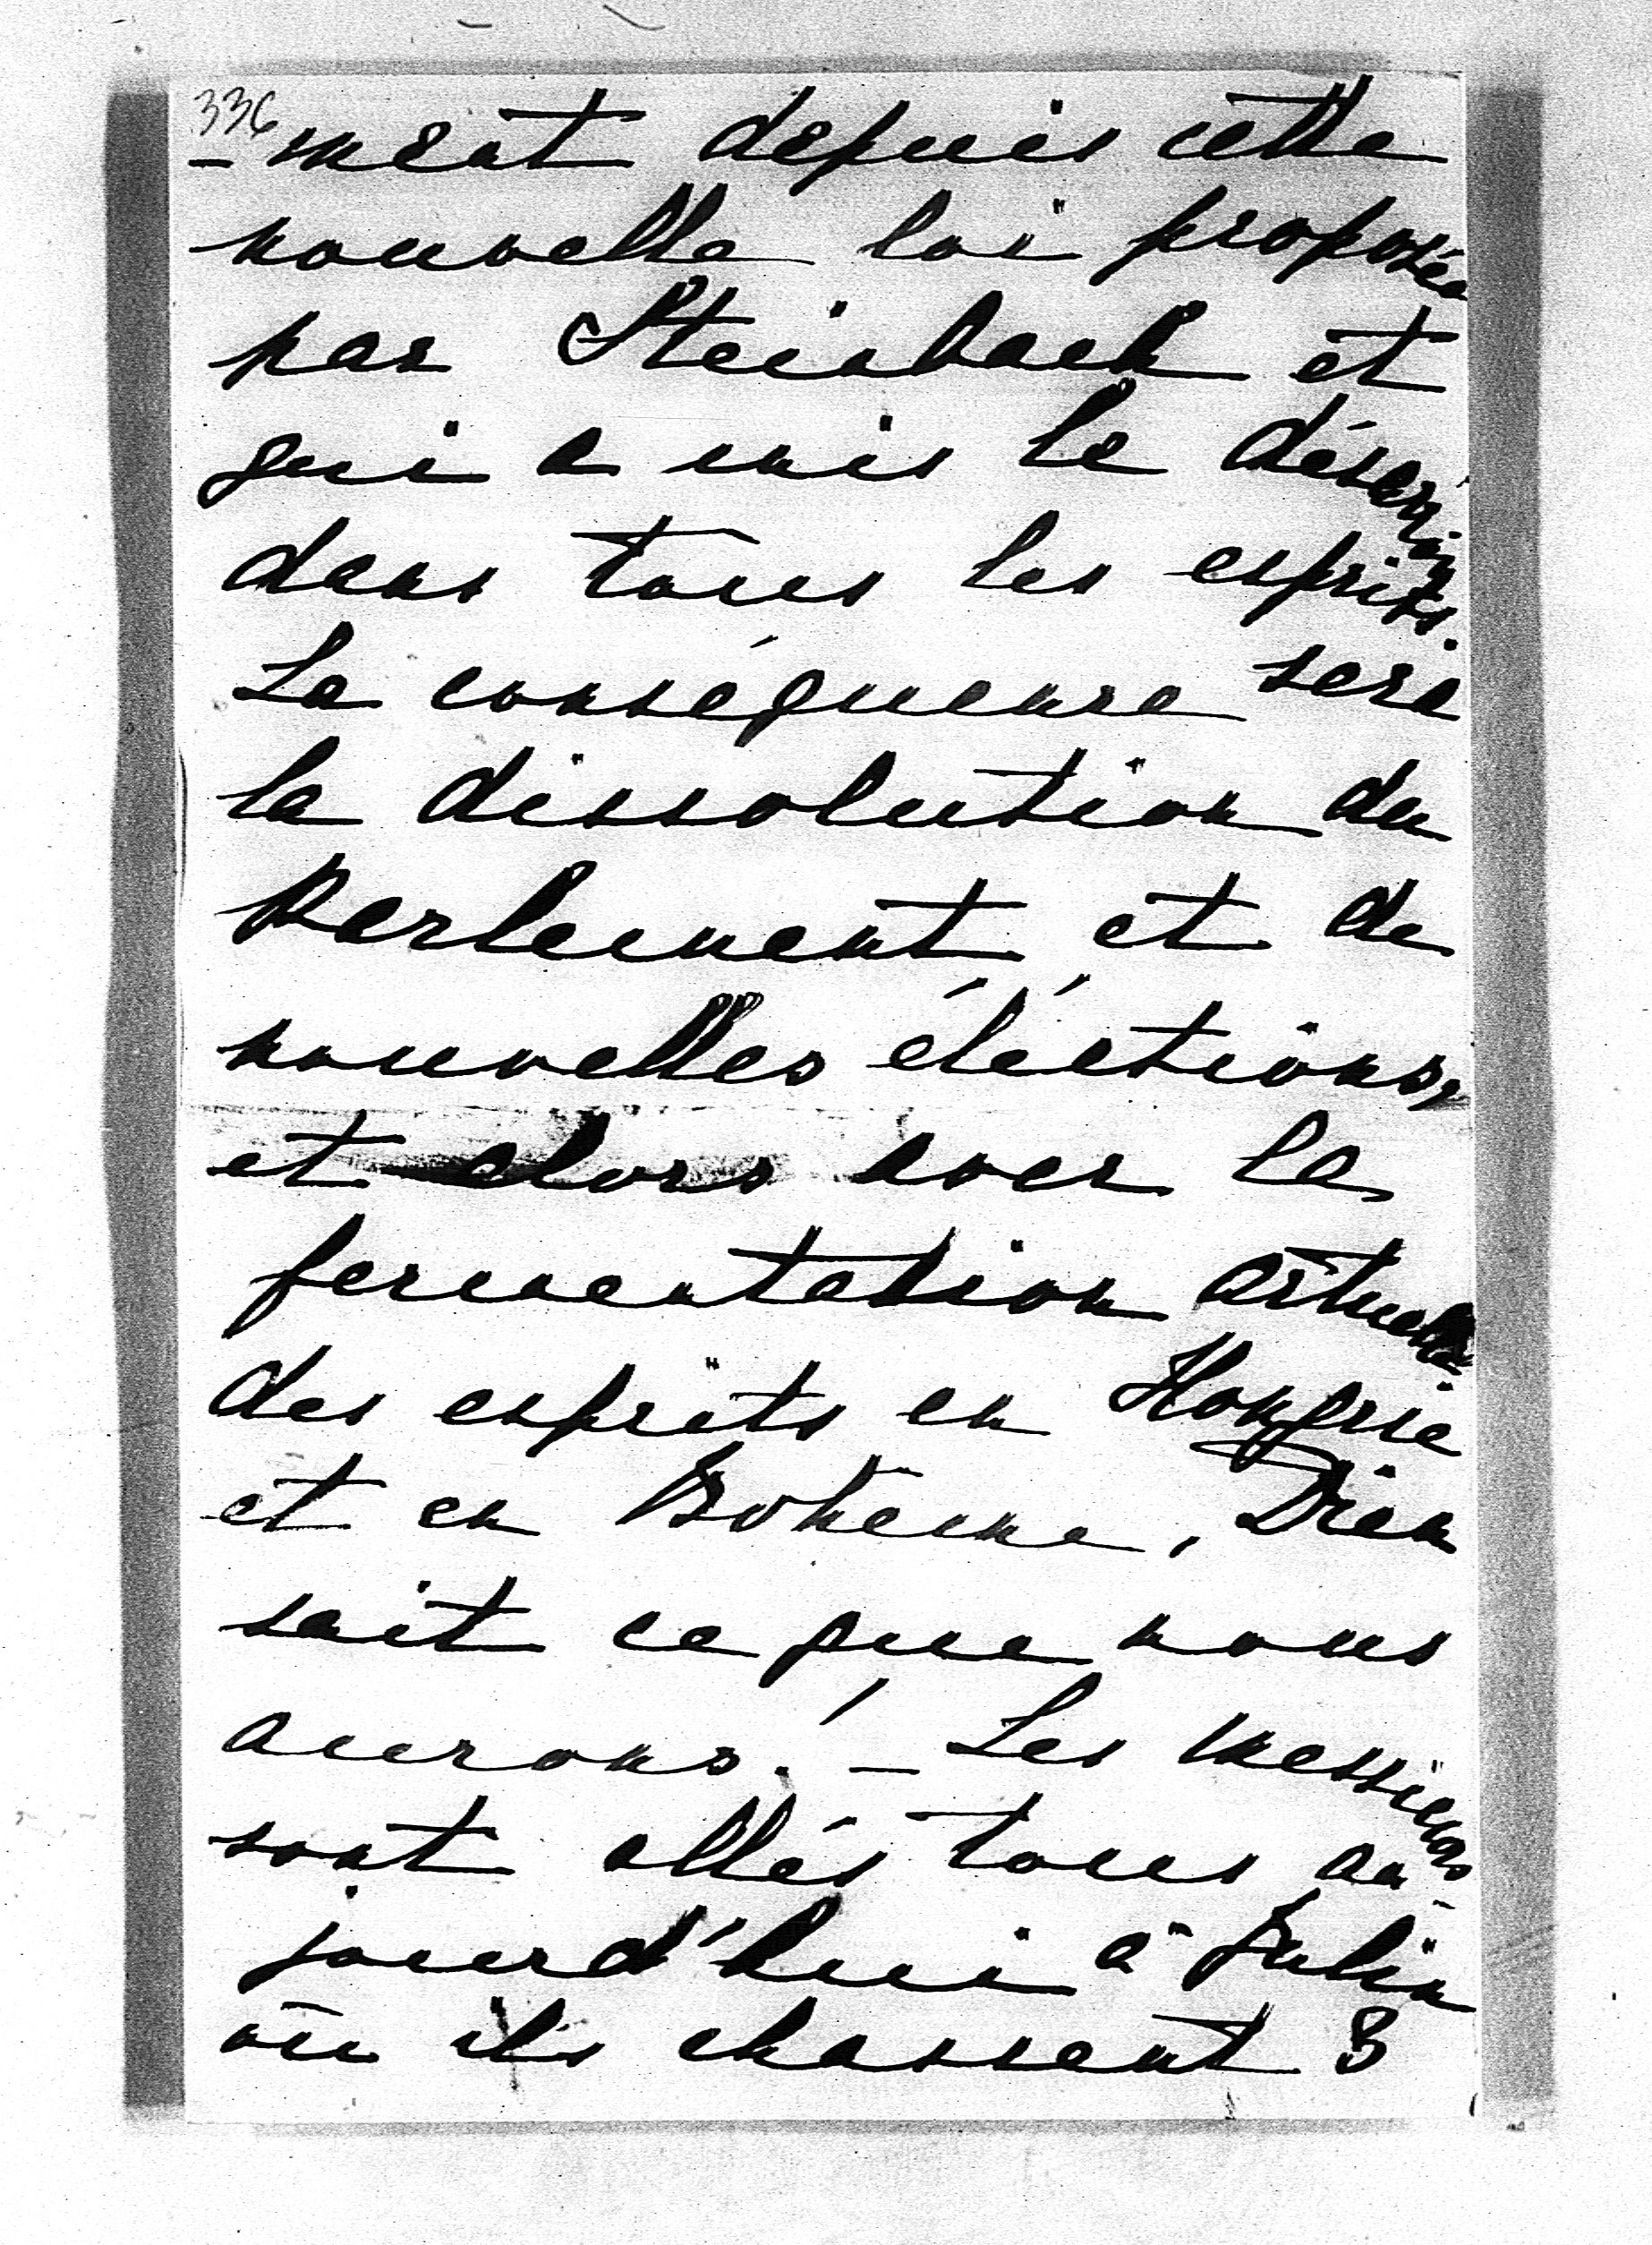 336
-ment depuis cette
nouvelle loi proposée
par Steinbach et
qui a mis le désarroi
dans tous les esprits.
La conséquence sera
la dissolution du
Parlement, et de
nouvelles éléctions,
et alors avec la
fermentation actuelle
des esprits en Hongrie
et en Bohème, Dieu
sait ce que nous
aurons! – Les messieurs
sont allés tous au-
jourd'hui à Julin
où ils chassent 3